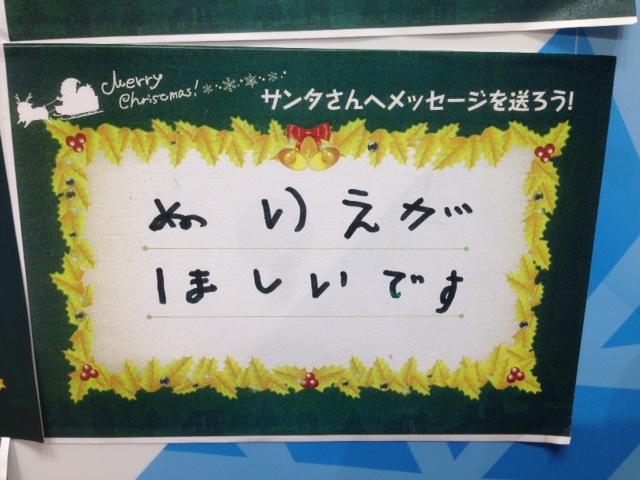 Merry
Christmas!
サンタさんへメッセージを送ろう!
ぬりえが
ほしいです